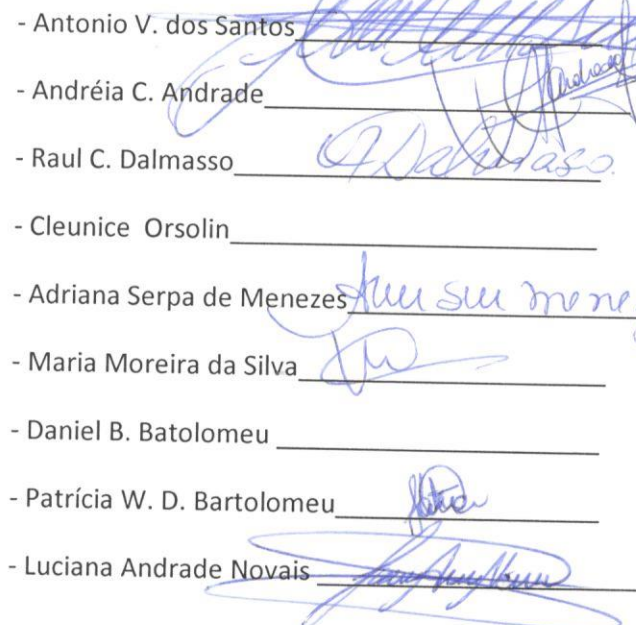 - Antonio V. dos Santos
- Andréia C. Andrade Andrade
- Raul C. Dalmasso Dalmaso
- Cleunice Orsolin
- Adriana Serpa de Menezes
- Maria Moreira da Silva
- Daniel B. Batolomeu
- Patrícia W. D. Bartolomeu
- Luciana Andrade Novais